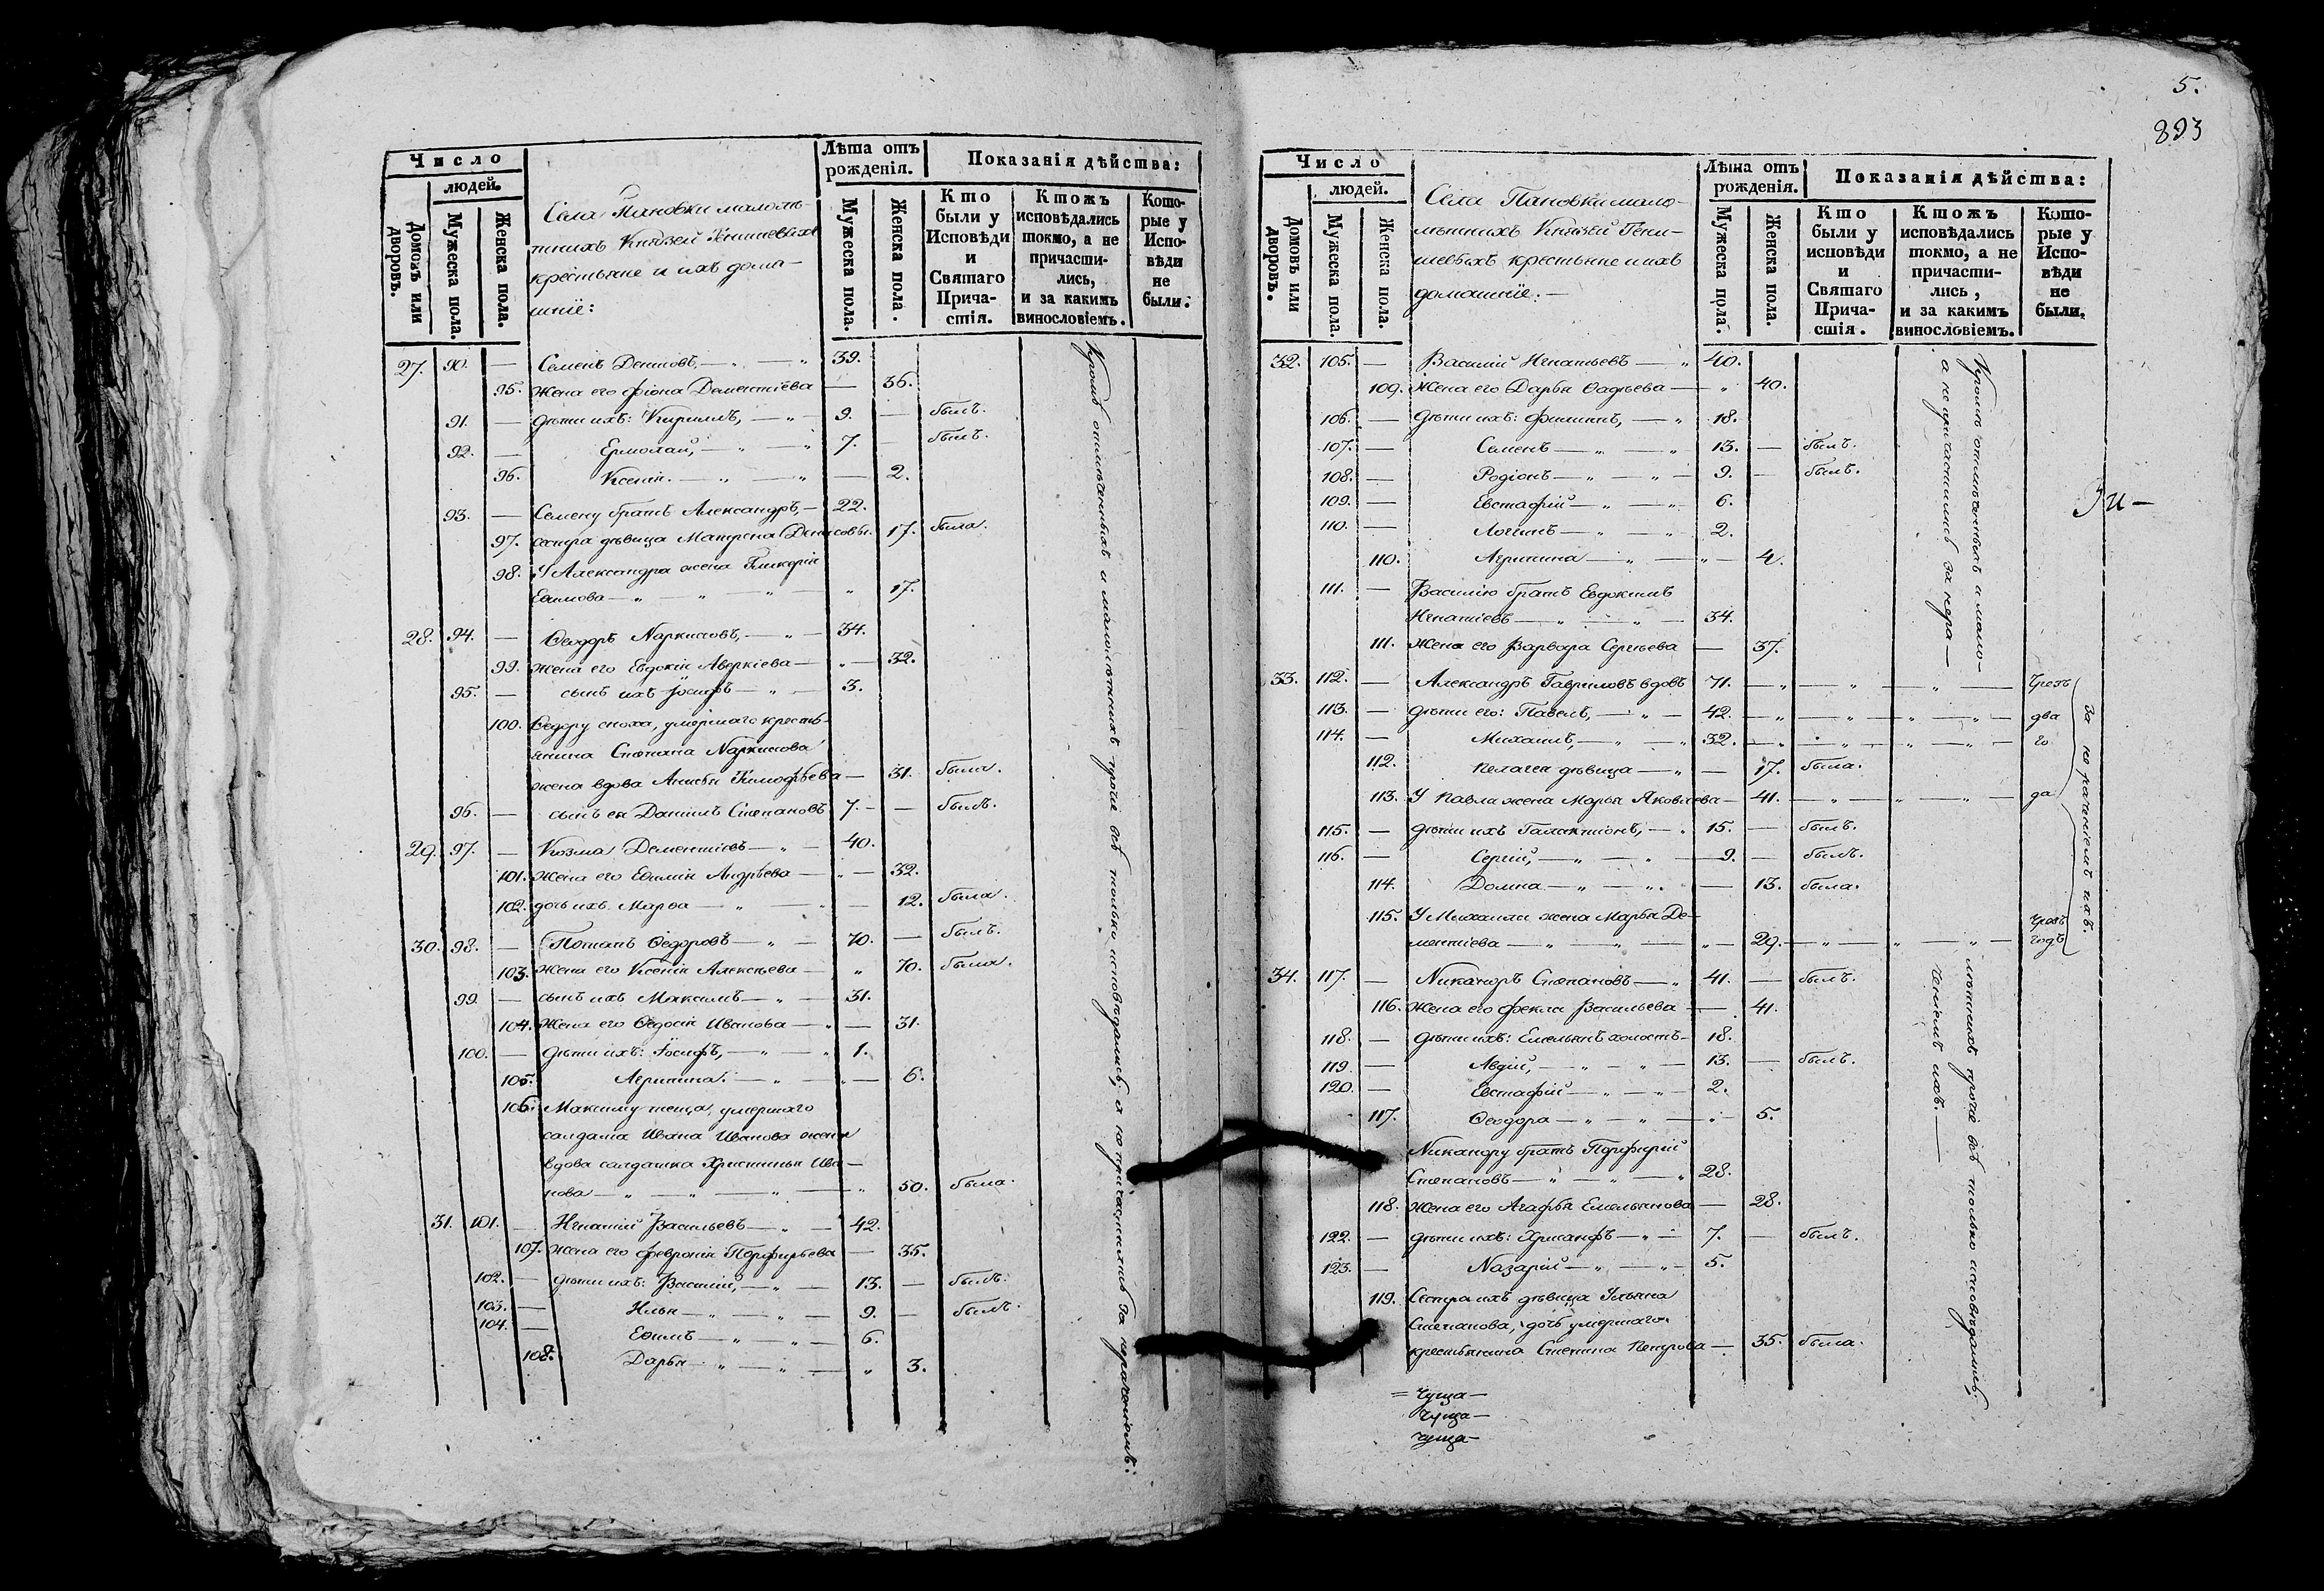 Число
людей.
Домовъ или дворовъ.
Мужеска пола.
Женска пола.
Лѣта отъ рожденія.
Мужеска пола.
Женска пола.
Показанія дѣйства:
Кто были у Исповѣди и Святаго Причастія.
Ктожъ исповѣдались токмо, а не причастились, и за какимъ винословіемъ.
Которые у Исповѣди не были.
Села Пановки малолѣ-
тнихъ Князей
крестьяне и ихъ дома-
шніе:
27. 90. — Семенъ Денисовъ, — „ — „ 39.
95. Жена его Фіона Дементіева — 36.
91. — дѣти ихъ: Кириллъ, — „ — 9. — былъ.
92. — Ермолай, — „ — „ 7. — былъ.
96. Ксенія. — „ — „ — 2.
93. — Семену братъ Александръ, — 22.
97. сестра дѣвица Матрена Денисовы. 17. была.
98. У Александра жена Гликерія
Ефимова — „ — „ — „ 17.
28. 94. — Ѳеодоръ Наркисовъ, — „ — 34.
99. Жена его Евдокія Аверкіева — „ — 32.
95. — сынъ ихъ Іосифъ — „ — 3.
100. Ѳедору сноха, умершаго кресть-
янина Степана Наркисова
жена вдова Анисья Тимофѣева — 31. была.
96. — сынъ ея Даніилъ Степановъ 7. — — былъ.
29. 97. — Козма Дементіевъ — „ — 40.
101. Жена его Еѳимія Андрѣева — „ — 32.
102. дочь ихъ Марѳа — „ — — 12. была.
30. 98. — Потапъ Ѳедоровъ — „ — 70. — былъ.
103. Жена его Ксенія Алексѣева — „ 70. была.
99. — сынъ ихъ Максимъ — „ — 31.
104. Жена его Ѳедосія Иванова — „ — 31.
100. — дѣти ихъ: Іосифъ, — „ — „ 1.
105. Агрипина. — „ — „ — 6.
106. Максиму теща, умершаго
салдата Ивана Иванова жена
вдова салдатка Христинья Ива-
нова — „ — „ — „ — „ 50. была.
31. 101. — Игнатій Васильевъ — „ — 42.
107. Жена его Февронія Порфирьева — 35.
102. — дѣти ихъ: Василій, — „ — 13. — былъ.
103. — Илья — „ — „ — 9. — былъ.
104. — Еѳимъ — „ — „ — 6.
108. Дарья — „ — „ — „ 3.
Кромѣ отмѣченныхъ и малолѣтнихъ прочіе всѣ только исповѣдались, а не причастились за нераченіемъ:
5.
893
Число
людей.
Домовъ или дворовъ.
Мужеска пола.
Женска пола.
Лѣта отъ рожденія.
Мужеска пола.
Женска пола.
Показанія дѣйства:
Кто были у исповѣди и Святаго Причастія.
Ктожъ исповѣдались токмо, а не причастились, и за какимъ винословіемъ.
Которые у Исповѣди не были.
Села Пановки мало-
лѣтнихъ Князей Тени-
шевыхъ крестьяне и ихъ
домашніе: —
32. 105. — Василій Игнатьевъ — „ 40.
109. Жена его Дарья Ѳадѣева — „ 40.
106. — дѣти ихъ: Филиппъ, — „ 18.
107. — Семенъ — „ — „ 13. — былъ.
108. — Родіонъ — „ — „ 9. — былъ.
109. — Евстафій — „ — „ 6.
110. — Логинъ — „ — „ 2.
110. Агрипина — „ — „ — 4.
111. — Василію братъ Евдокимъ
Игнатіевъ — „ — „ — 34.
111. Жена его Варвара Сергѣева — 37.
33. 112. — Александръ Гавриловъ вдовъ 71. — „ — „ — „ — Чрезъ
113. — дѣти его: Павелъ, — „ — 42. — „ — „ — „ — „ — два
114. — Михаилъ, — „ — „ 32. — „ — „ — „ — „ — го
112. Пелагея дѣвица — „ — 17. была.
113. У Павла жена Марья Яковлева — 41. — „ — „ — „ — да
115. — дѣти ихъ Галактіонъ, — „ 15. — былъ.
116. — Сергій, — „ — „ — 9. — былъ.
114. Домна — „ — „ — 13. была.
115. У Михаилы жена Марья Де-
ментіева — „ — „ — „ — 29. — „ — „ — „ — Чрезъ годъ
34. 117. — Никаноръ Степановъ — „ 41. — былъ.
116. Жена его Фекла Васильева — 41.
118. — дѣти ихъ: Емельянъ холостъ — 18.
119. — Авдій, — „ — „ — 13. — былъ.
120. — Евстафій — „ — „ — 2.
117. Ѳеодора — „ — „ — „ 5.
Никанору братъ Порфирій
Степановъ — „ — „ — „ 28.
118. Жена его Агафья Емельянова — 28.
122. — дѣти ихъ: Хрисанфъ — „ — 7. — былъ.
123. — Назарій — „ — „ — 5.
119. Сестра ихъ дѣвица Ульяна
Степанова, дочь умершаго
крестьянина Степана Петрова — 35. была.
Кромѣ отмѣченныхъ и мало-
лѣтнихъ прочіе всѣ только исповѣдались,
а не причастились за нера-
ченіемъ ихъ. —
за нераченіемъ ихъ.